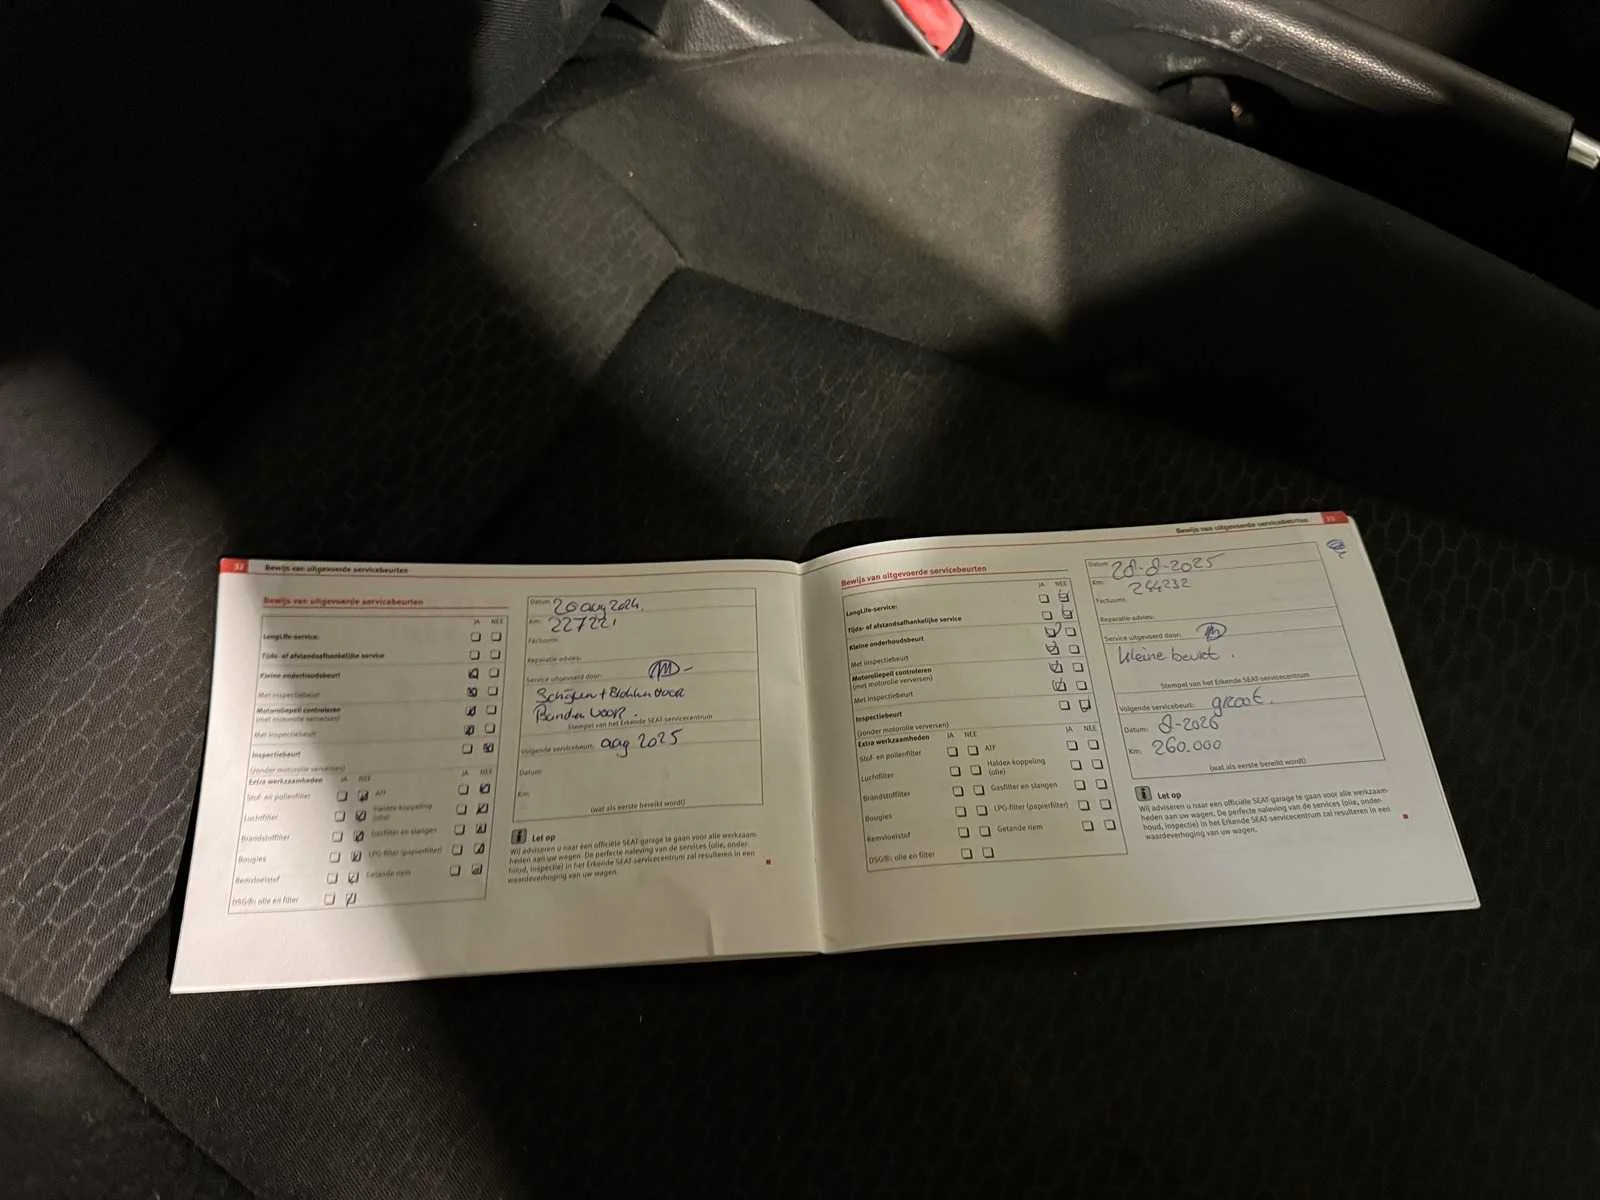 32 Bewijs van uitgevoerde servicebeurten
Bewijs van uitgevoerde servicebeurten
JA NEE
LongLife-service:
Tijds- of afstandsafhankelijke service
Kleine onderhoudsbeurt
Met inspectiebeurt
Motoroliepeil controleren
(met motorolie verversen)
Met inspectiebeurt
Inspectiebeurt
(zonder motorolie verversen)
Extra werkzaamheden JA NEE JA NEE
Stof- en pollenfilter ATF
Luchtfilter Haldex-koppeling
(olie)
Brandstoffilter Gasfilter en slangen
Bougies LPG-filter (papierfilter)
Remvloeistof Getande riem
DSG®: olie en filter
Datum: 20 aug 2024.
Km: 227221
Factuurnr.
Reparatie-advies:
Service uitgevoerd door:
Schijven + Blokken voor
Banden voor.
Stempel van het Erkende SEAT-servicecentrum
Volgende servicebeurt: aug 2025
Datum:
Km:
(wat als eerste bereikt wordt)
Let op
Wij adviseren u naar een officiële SEAT-garage te gaan voor alle werkzaam-
heden aan uw wagen. De perfecte naleving van de services (olie, onder-
houd, inspectie) in het Erkende SEAT-servicecentrum zal resulteren in een
waardeverhoging van uw wagen.
Bewijs van uitgevoerde servicebeurten 33
Bewijs van uitgevoerde servicebeurten
JA NEE
LongLife-service:
Tijds- of afstandsafhankelijke service
Kleine onderhoudsbeurt
Met inspectiebeurt
Motoroliepeil controleren
(met motorolie verversen)
Met inspectiebeurt
Inspectiebeurt
(zonder motorolie verversen)
Extra werkzaamheden JA NEE JA NEE
Stof- en pollenfilter ATF
Luchtfilter Haldex-koppeling
(olie)
Brandstoffilter Gasfilter en slangen
Bougies LPG-filter (papierfilter)
Remvloeistof Getande riem
DSG®: olie en filter
Datum: 28-8-2025
Km: 244232
Factuurnr.
Reparatie-advies:
Service uitgevoerd door:
kleine beurt.
Stempel van het Erkende SEAT-servicecentrum
Volgende servicebeurt: groot.
Datum: 8-2026
Km: 260.000
(wat als eerste bereikt wordt)
Let op
Wij adviseren u naar een officiële SEAT-garage te gaan voor alle werkzaam-
heden aan uw wagen. De perfecte naleving van de services (olie, onder-
houd, inspectie) in het Erkende SEAT-servicecentrum zal resulteren in een
waardeverhoging van uw wagen.